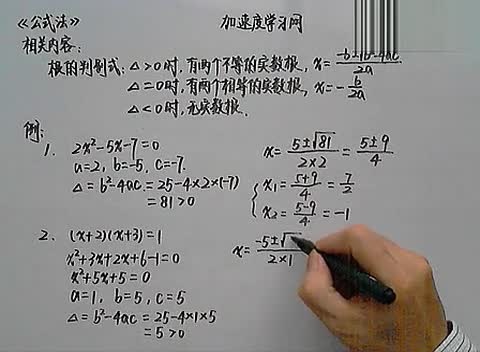 《公式法》 加速度学习网
相关内容:
根的判别式: △>0时,有两个不等的实数根, x=(-b±√b²-4ac)/2a
△=0时,有两个相等的实数根, x=-b/2a
△<0时,无实数根.
例:
1. 2x²-5x-7=0
a=2, b=-5, c=-7.
△=b²-4ac=25-4×2×(-7)
=81>0
x=(5±√81)/(2×2)=(5±9)/4
x₁=(5+9)/4=7/2
x₂=(5-9)/4=-1
2. (x+2)(x+3)=1
x²+3x+2x+6-1=0
x²+5x+5=0
a=1, b=5, c=5
△=b²-4ac=25-4×1×5
=5>0
x=(-5±√)/(2×1)